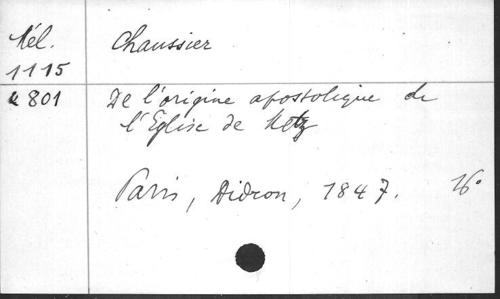 Mél. Chaussier
1115
801 De l'origine apostolique de
l'Eglise de Metz
Paris, Didron, 1847. 16°